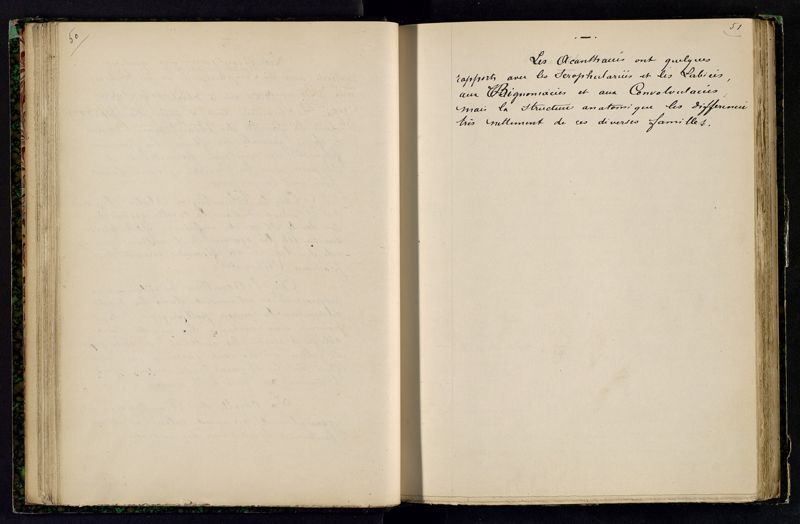 50
51
Les Acanthacées ont quelques
rapports avec les Scrophulariées et les Labiées,
aux Bignoniacées et aux Convolvulacées,
mais la structure anatomique les différencie
très nettement de ces diverses familles.